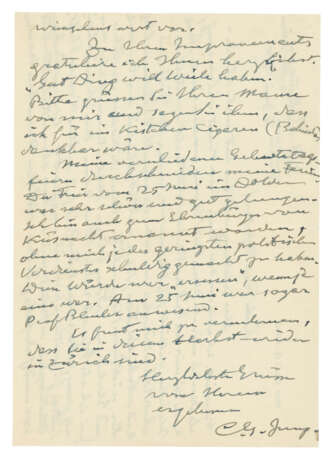 wünschenswert vor.
Zu Ihren Improvements
gratuliere ich Ihnen herzlichst.
"Gut Ding will Weile haben."
Bitte grüssen Sie Ihren Mann
von mir und sagen Sie ihm, dass
ich für ein Kistchen Cigarren
dankbar wäre.
Meine verschiedenen Geburtstags-
feiern überschneiden meine Ferien.
Die Feier vom 25 Juni im Dolder
war sehr schön und gut gelungen.
Ich bin auch zum Ehrenbürger von
Küsnacht ernannt worden,
ohne mich je des geringsten politischen
Verdiensts schuldig gemacht zu haben.
Die Würde war "ersessen",
Am 25 Juni war sogar
Prof Bleuler anwesend.
Es freut mich zu vernehmen,
dass Sie in diesem Herbst wieder
in Zürich sind.
Herzlichste Grüsse
von Ihrem
ergebenen
C. G. Jung.